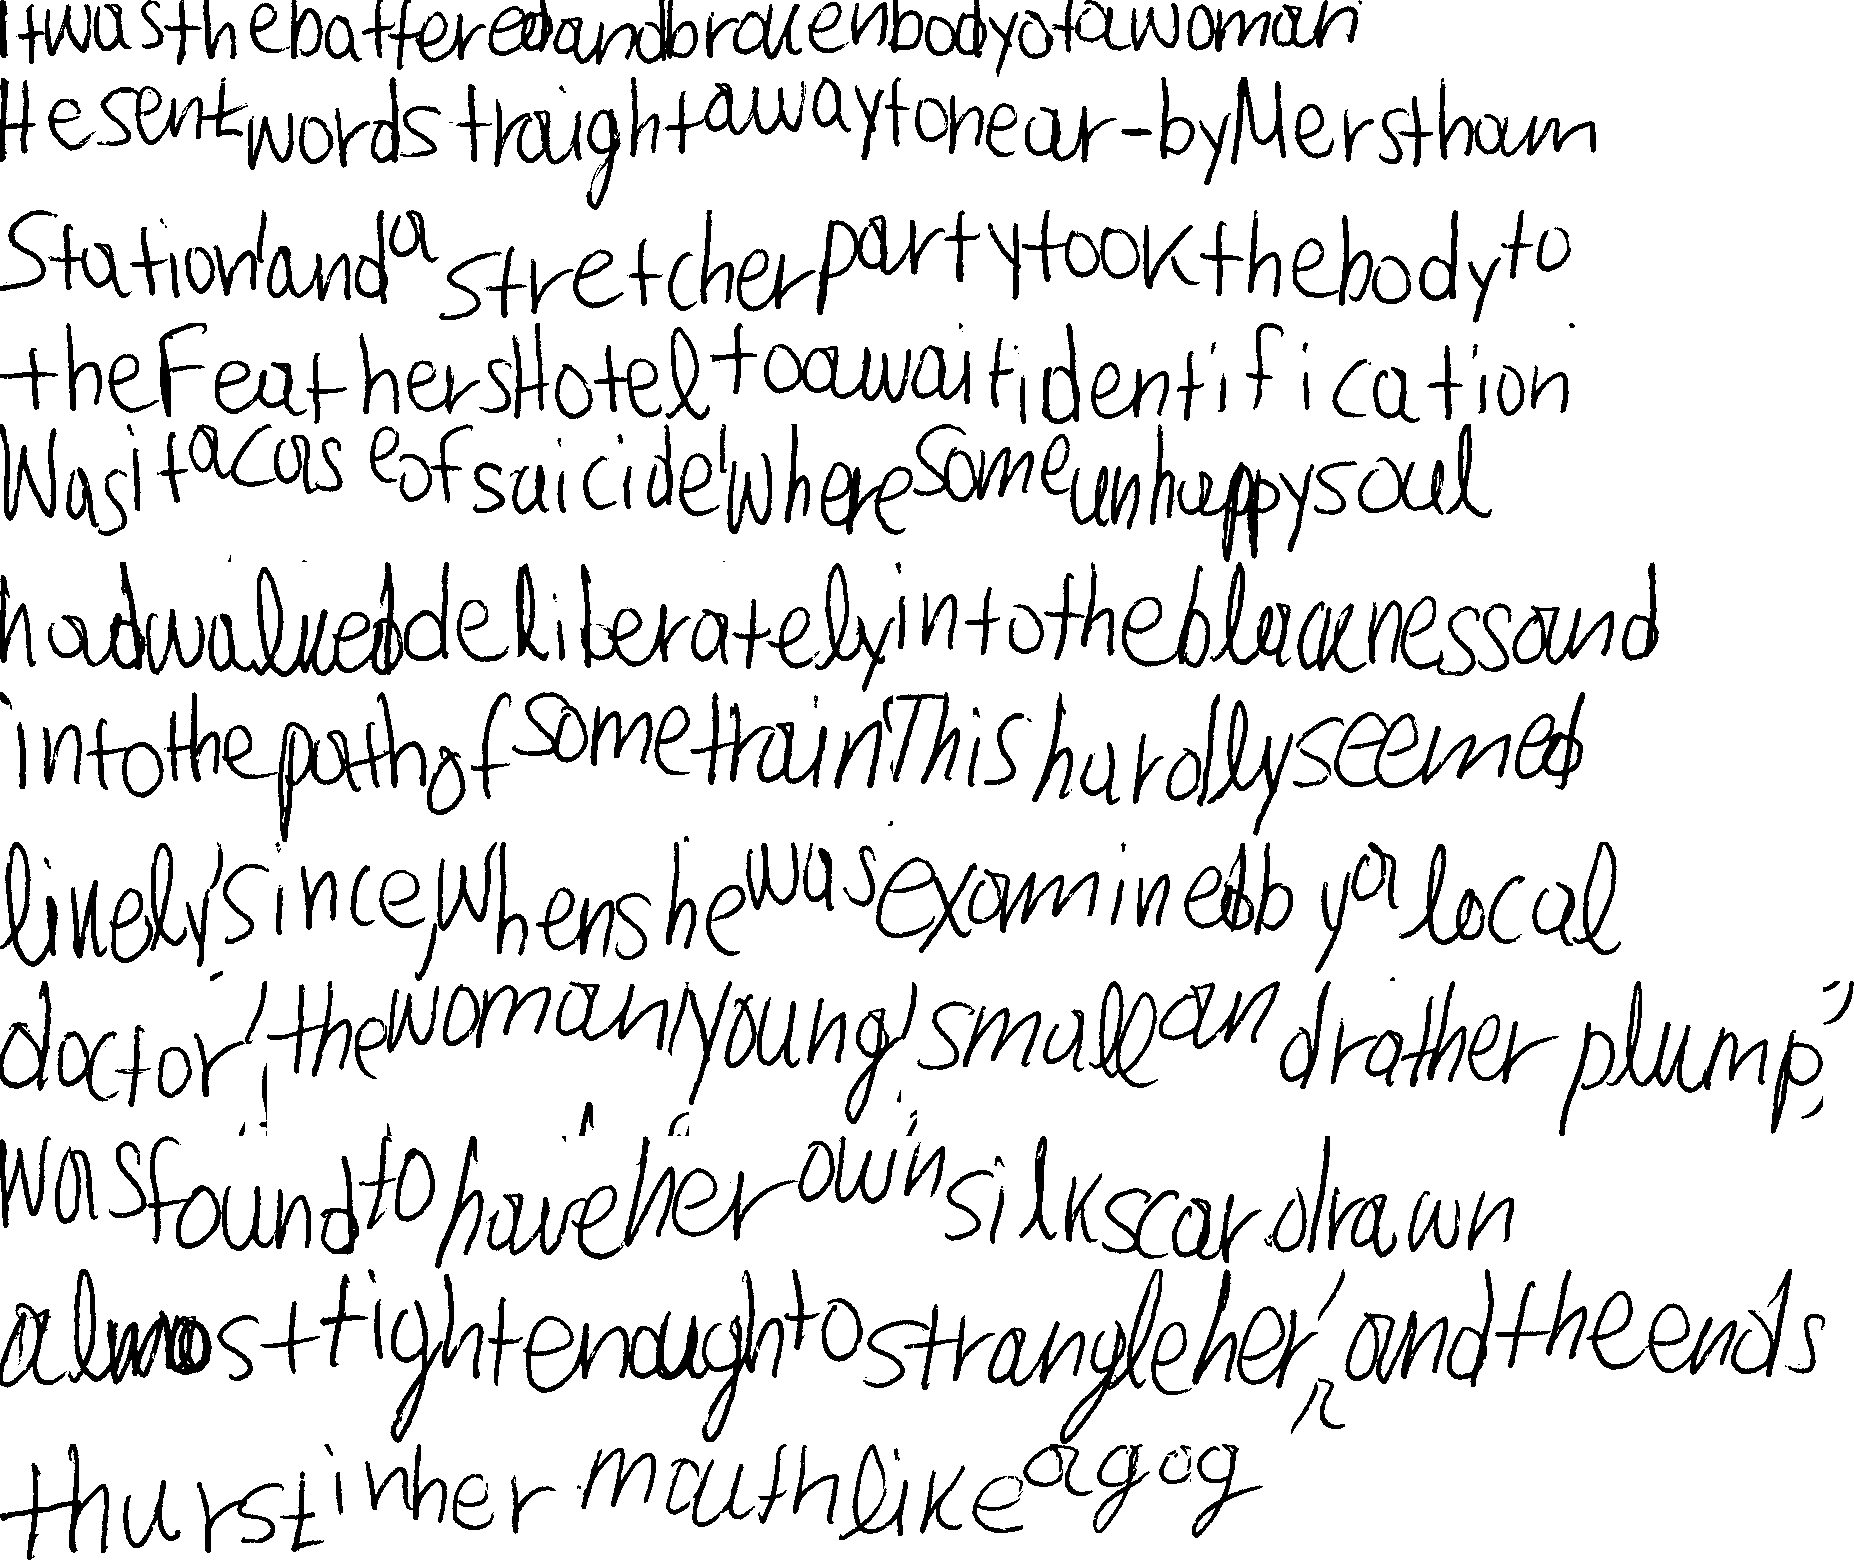 It was the battered and broken body of a woman
He sent word straight away to near-by Merstham
Station and a stretcher party took the body to
the Feathers Hotel to await identification
Was it a case of suicide where some unhappy soul
had walked deliberately into the blackness and
into the path of some train This hardly seemed
likely, since, when she was examined by a local
doctor, the woman, young, small and rather plump,
was found to have her own silk scar drawn
almost tight enough to strangle her, and the ends
thurst in her mouth like a gog